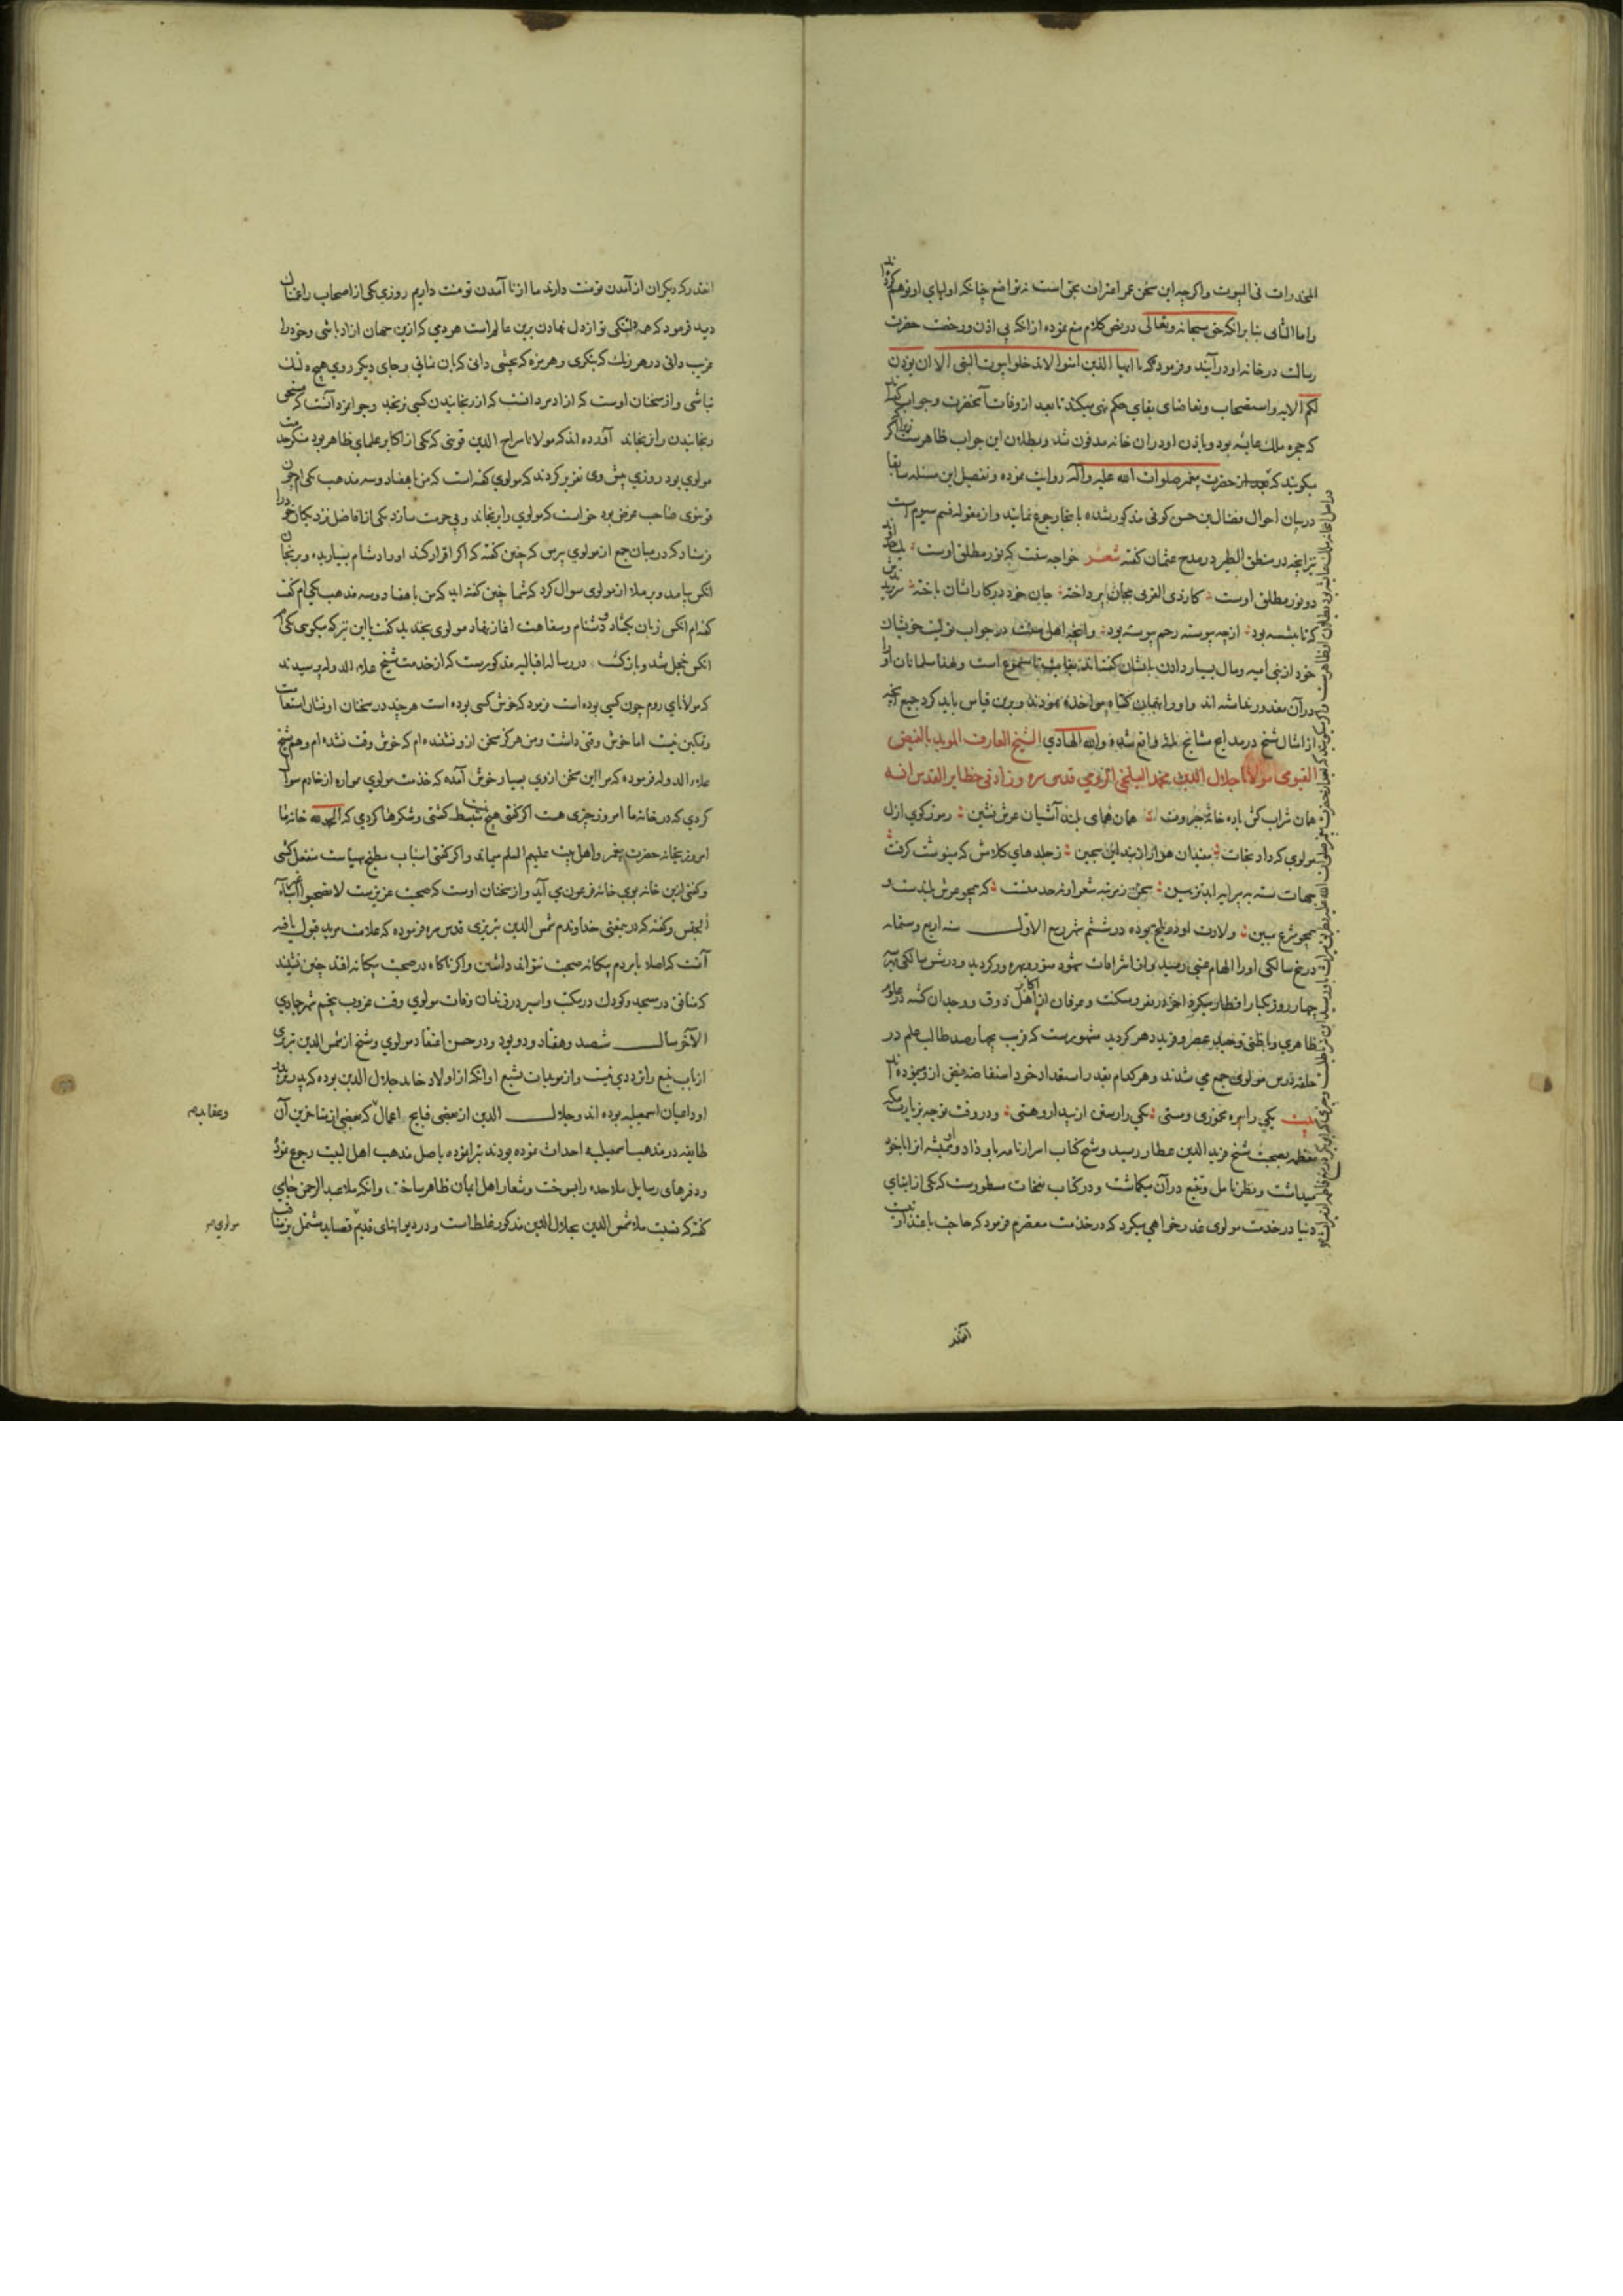 المخدرات فی البیوت واکرچه این سخن عمر اعتراف بحق است نه تواضع چنانکه اولیای او توهم کرده‌اند
واما الثانی بنا برانکه حق سبحانه وتعالی در نص کلام منع نموده از انکه بی اذن ورخصت حضرت
رسالت در خانه او درآیند وفرموده که یا ایها الذین امنوا لا تدخلوا بیوت النبی الا ان یؤذن
لکم الایه واستصحاب وتقاضای بقای حکم نهی میکند تا بعد از وفات آنحضرت وجواب
که حجره ملک عایشه بود وباذن او در ان خانه مدفون شد وبطلان این جواب ظاهرست
میکویند که حضرت پیغمبر صلوات الله علیه وآله روایت نموده وتفصیل این مسئله سابقا
در بیان احوال فضال بن حسن کوفی مذکور شده بانجا رجوع نمایند واز مقوله قسم سیوم است
نیز انچه در منطق الطیر در مدح عثمان کفته شعر خواجه سنت که نور مطلق اوست
دو نور مطلق اوست کار ذی القربی بجان پرداخته جان خود در کار ایشان باخته
از چه پیوسته رحم پیوسته بود وانچه اهل سنت در جواب تولیت خویشان
خود از بنی امیه ومال بسیار دادن بایشان کفته‌اند ولهذا مسلمانان او را
در آن معذور نداشته اند واو را بر این قیاس باید کرد جمیع انچه
از امثال شیخ در مدایح مشایخ ثلثه واقع شده والله الهادی الشیخ العارف الموید بالفیض
القیومی مولانا جلال الدین محمد البلخی الرومی قدس سره وزاد فی حظایر القدس انسه
همان شراب کش باده خانه جبروت همان همای بلند آشیان عرش نشین رموز کوی ازل
مولوی که داد نجات سمندان هوا را از بند این سجین ز جلدهای کلامش که مینوشت کرفت
جهات سته به پیرایه ابد تزیین سخن ز مرتبه شعر او نه حد منست که همچو عرش بلندست و
همچو شرع مبین ولادت او در بلخ بوده در ششم شهر ربیع الاول سنه اربع وستمایه
در پنج سالکی او را الهام غیبی رسید واز اشراقات شهود
چهار روز یکبار افطار میکرد اخر در فقر ومسکنت وعرفان از اکابر اهل ذوق ووجدان کشته در علوم
ظاهری وباطنی وحید عصر وفرید دهر کردید مشهورست که قریب چهارصد طالب علم در
حلقه درس مولوی جمع می شدند وهر کدام بقدر استعداد خود استفاضه فیض از او میموده‌اند
بیت یکی را سیره مخموری ومستی یکی را رستن از پندار وهستی ودر وقت توجه بزیارت مکه
معظمه بصحبت شیخ فرید الدین عطار رسید وشیخ کتاب اسرارنامه باو داد وهمیشه انرا با خود
میداشت وبنظر تامل وتتبع در آن میکماشت ودر کتاب نفحات مسطورست که یکی از ابنای
دنیا در خدمت مولوی عذرخواهی میکرد که در خدمت مقصرم فرمود که حاجت باعتذار نیست
آنقدر
انقدر که دیکران از آمدن تو منت دارند ما از نا آمدن تو منت داریم روزی یکی از اصحاب را غمناک
دید فرمود که همه دلتنکی تو از دل نهادن برین عالم است هر دمی که ازین جهان ازاد باشی وخود را
غریب دانی ودر هر رنک که بنکری وهر مزه که بچشی دانی که بآن نمانی وجای دیکر روی هیچ دلتنک
نباشی واز سخنان اوست که ازاد مرد انست که از رنجانیدن کسی نرنجد وجوانمرد آنست که مستحق
رنجانیدن را نرنجاند آورده اند که مولانا سراج الدین قونوی که یکی از اکابر علمای ظاهر بود منکر خدمت
مولوی بود روزی پیش وی تقریر کردند که مولوی کفته است که من با هفتاد وسه مذهب یکی ام چون
قونوی صاحب غرض بود خواست که مولوی را برنجاند وبی حرمت سازد یکی از افاضل نزدیکان خود را
فرستاد که در میان جمع از مولوی بپرس که چنین کفته که اکر اقرار کند او را دشنام بسیار بده وبرنجان
انکس بیامد وبر ملا از مولوی سوال کرد که شما چنین کفته اید که من با هفتاد وسه مذهب یکی ام کفت
کفته‌ام انکس زبان بکشاد ودشنام وسفاهت اغاز نهاد مولوی بخندید کفت با این نیز که میکوی یکی ام
انکس خجل شد وباز کشت در رساله اقبالیه مذکورست که از خدمت شیخ علاء الدوله پرسیدند
که مولانای روم چون کسی بوده است فرمود که خوش کسی بوده است هر چند در سخنان او نشان استقامت
وتمکین نیست اما خوش وقتی داشت ومن هرکز سخن از او نشنیده ام که خوش وقت نشده ام وهم شیخ
علاء الدوله فرموده که مرا این سخن از وی بسیار خوش آمده که خدمت مولوی همواره از خادم سوال
کردی که در خانه ما امروز چیزی هست اکر کفتی هیچ نیست منبسط کشتی وشکرها کردی که الحمد لله خانه ما
امروز بخانه حضرت پیغمبر واهل بیت علیهم السلم میماند واکر کفتی اسباب مطبخ مهیاست منفعل کشتی
وکفتی ازین خانه بوی خانه فرعون می آید واز سخنان اوست که صحبت عزیزست لا تصاحبوا غیر ابناء
الجنس وکفته که درین معنی خداوندم شمس الدین تبریزی قدس سره فرموده که علامت مرید قبول یافته
آنست که اصلا با مردم بیکانه صحبت نتواند داشتن واکر ناکاه در صحبت بیکانه افتد چنین نشیند
که منافق در مسجد وکودک در مکتب واسیر در زندان وفات مولوی وقت غروب پنجم شهر جمادی
الآخر سال ششصد وهفتاد ودو بود ودر حسن اعتقاد مولوی وشیخ او شمس الدین تبریزی
ارباب تتبع را تردیدی نیست واز مویدات تشیع او انکه از اولاد خاوند جلال الدین بوده که پدر بر پدر
او داعیان اسمعیلیه بوده اند وجلال الدین از بعضی قبایح اعمال که بعضی از متاخرین آن
وعقاید
طایفه در مذهب اسمعیلیه احداث نموده بودند تبرا نموده باصل مذهب اهل البیت رجوع نمود
ودفترهای رسایل ملاحده را بسوخت وشعار اهل ایمان ظاهر ساخت وانکه ملا عبد الرحمن جامی
کفته که نسبت ملا شمس الدین بجلال الدین مذکور غلط است ودر دیوانهای قدیم قصاید مشتمل
مولوی